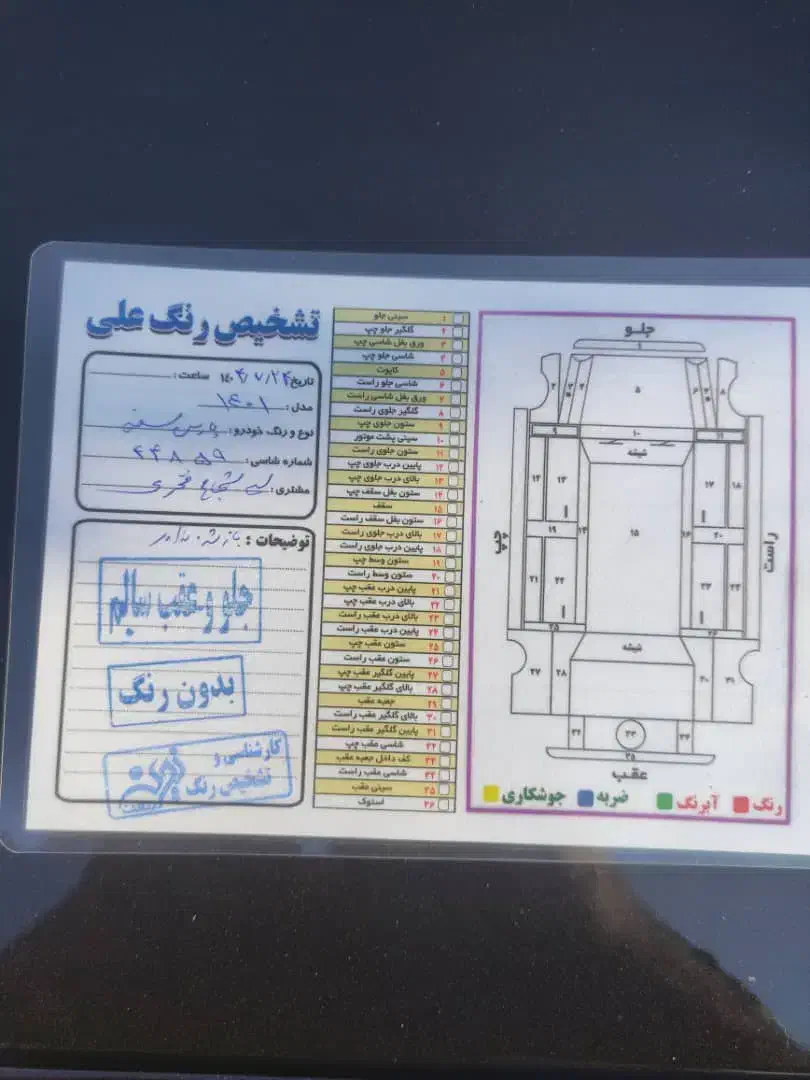 تشخیص رنگ علی
تاریخ ۱۴۰۴/۷/۲۴ ساعت:
مدل: ۱۴۰۱
نوع و رنگ خودرو: پارس سفید
شماره شاسی: ۴۴۸۵۹
مشتری:
توضیحات:
جلو و عقب سالم
بدون رنگ
کارشناسی و
تشخیص رنگ
۱ سینی جلو
۲ گلگیر جلو چپ
۳ ورق بغل شاسی چپ
۴ شاسی جلو چپ
۵ کاپوت
۶ شاسی جلو راست
۷ ورق بغل شاسی راست
۸ گلگیر جلوی راست
۹ ستون جلوی چپ
۱۰ سینی پشت موتور
۱۱ ستون جلوی راست
۱۲ پایین درب جلوی چپ
۱۳ بالای درب جلوی چپ
۱۴ ستون بغل سقف چپ
۱۵ سقف
۱۶ ستون بغل سقف راست
۱۷ بالای درب جلوی راست
۱۸ پایین درب جلوی راست
۱۹ ستون وسط چپ
۲۰ ستون وسط راست
۲۱ پایین درب عقب چپ
۲۲ بالای درب عقب چپ
۲۳ بالای درب عقب راست
۲۴ پایین درب عقب راست
۲۵ ستون عقب چپ
۲۶ ستون عقب راست
۲۷ پایین گلگیر عقب چپ
۲۸ بالای گلگیر عقب چپ
۲۹ جعبه عقب
۳۰ بالای گلگیر عقب راست
۳۱ پایین گلگیر عقب راست
۳۲ شاسی عقب چپ
۳۳ کف داخل جعبه عقب
۳۴ شاسی عقب راست
۳۵ سینی عقب
۳۶ استوک
جلو
۱
۲ ۳ ۴ ۵ ۶ ۷ ۸
۹ ۱۰ ۱۱
شیشه
۱۲ ۱۳ ۱۷ ۱۸
چپ ۱۹ ۱۴ ۱۵ ۱۶ ۲۰ راست
۲۱ ۲۲ ۲۳ ۲۴
۲۵ ۲۶
شیشه
۲۷ ۲۸ ۳۰
۳۲ ۳۳ ۳۴
۳۵
عقب
رنگ آبرنگ ضربه جوشکاری